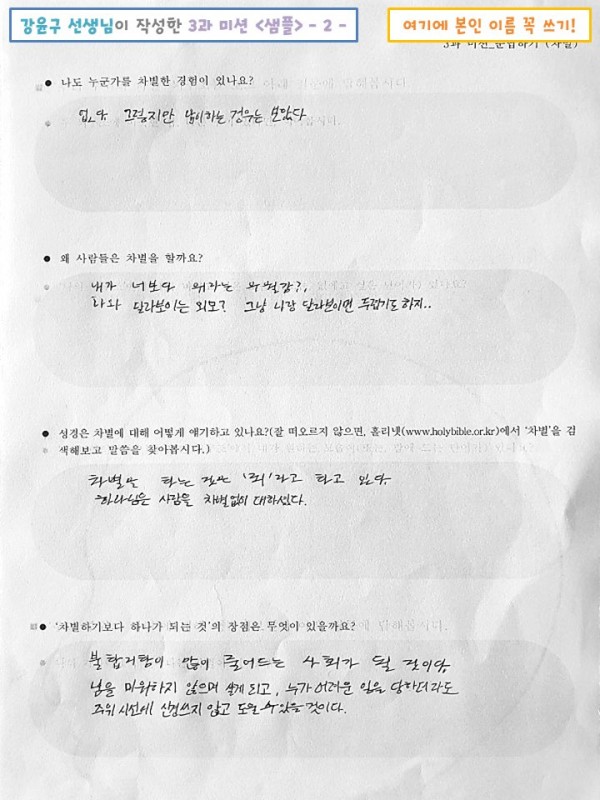 강윤구 선생님이 작성한 3과 미션 <샘플> - 2 -
여기에 본인 이름 꼭 쓰기!
3과 미션_문답하기 (차별)
● 나도 누군가를 차별한 경험이 있나요?
없다 그렇지만 남이하는 경우는 보았다
● 왜 사람들은 차별을 할까요?
내가 너보다 뭐라는 우월감?,
나와 달라보이는 외모? 그냥 나랑 달라보이면 두렵기도 하지..
● 성경은 차별에 대해 어떻게 얘기하고 있나요?(잘 떠오르지 않으면, 홀리넷(www.holybible.or.kr)에서 '차별'을 검
색해보고 말씀을 찾아봅시다.)
차별은 하는 것은 '죄'라고 하고 있다
하나님은 사람을 차별없이 대하셨다.
● '차별하기보다 하나가 되는 것'의 장점은 무엇이 있을까요?
불합리함이 많이 줄어드는 사회가 될 것이다
남을 미워하지 않으며 살게 되고, 누가 어려운 일을 당하더라도
주위 시선에 신경쓰지 않고 도울 수 있을 것이다.